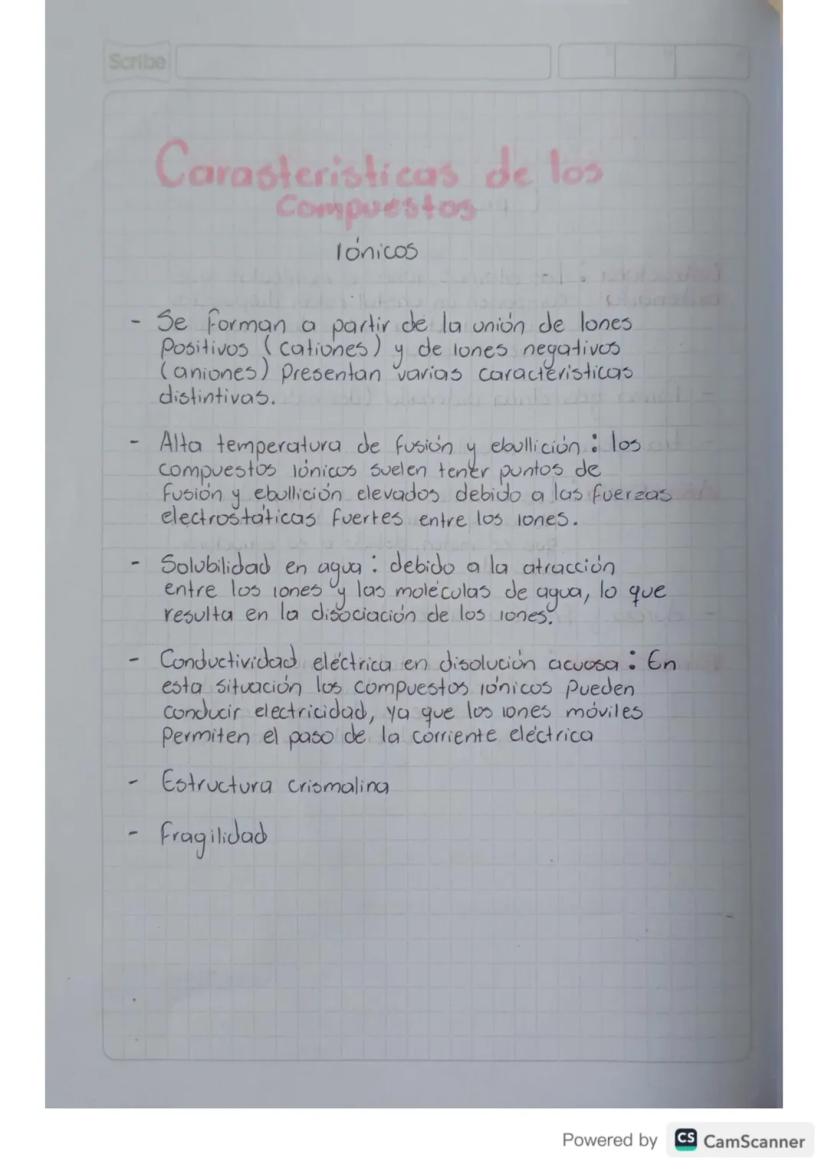 Scribe
Carasteristicas de los
Compuestos
Iónicos
- Se forman a partir de la unión de Iones
Positivos (cationes) y de iones negativos
(aniones) Presentan varias características
distintivas.
- Alta temperatura de fusión y ebullición : los
compuestos iónicos suelen tener puntos de
fusión y ebullición elevados debido a las fuerzas
electrostáticas fuertes entre los iones.
- Solubilidad en agua : debido a la atracción
entre los iones y las moléculas de agua, lo que
resulta en la disociación de los iones.
- Conductividad eléctrica en disolución acuosa : En
esta situación los compuestos iónicos Pueden
conducir electricidad, ya que los iones móviles
Permiten el paso de la corriente eléctrica
- Estructura crismalina
- fragilidad
Powered by CS CamScanner